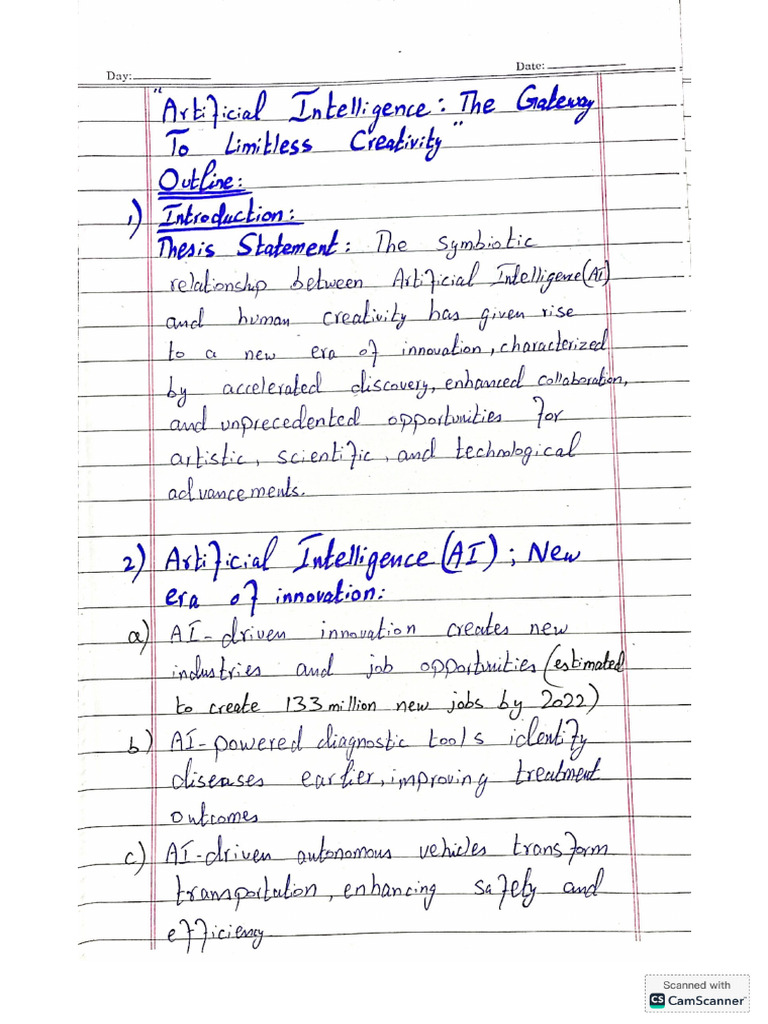 Day:
Date:
"Artificial Intelligence: The Gateway
To Limitless Creativity"
Outline:
1) Introduction:
Thesis Statement: The symbiotic
relationship between Artificial Intelligence (AI)
and human creativity has given rise
to a new era of innovation, characterized
by accelerated discovery, enhanced collaboration,
and unprecedented opportunities for
artistic, scientific, and technological
advancements.
2) Artificial Intelligence (AI); New
era of innovation:
a) AI-driven innovation creates new
industries and job opportunities (estimated
to create 133 million new jobs by 2022)
b) AI-powered diagnostic tools identify
diseases earlier, improving treatment
outcomes
c) AI-driven autonomous vehicles transform
transportation, enhancing safety and
efficiency
Scanned with
CS CamScanner